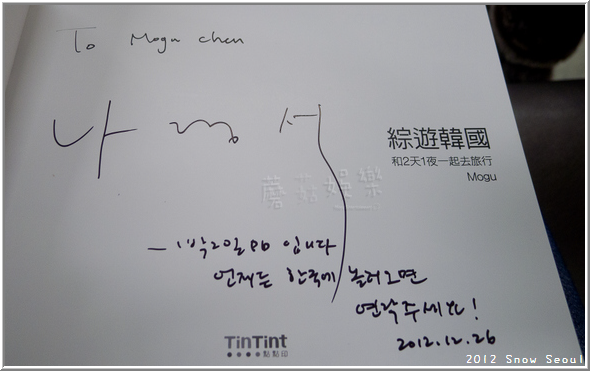 To Mogu chen
나
綜遊韓國
和2天1夜一起去旅行
Mogu
蘑菇娛樂
- 1박2일 PD 입니다
언제든 한국에 놀러오면
연락주세요!
2012.12.26
TinTint
點點印
2012 Snow Seoul